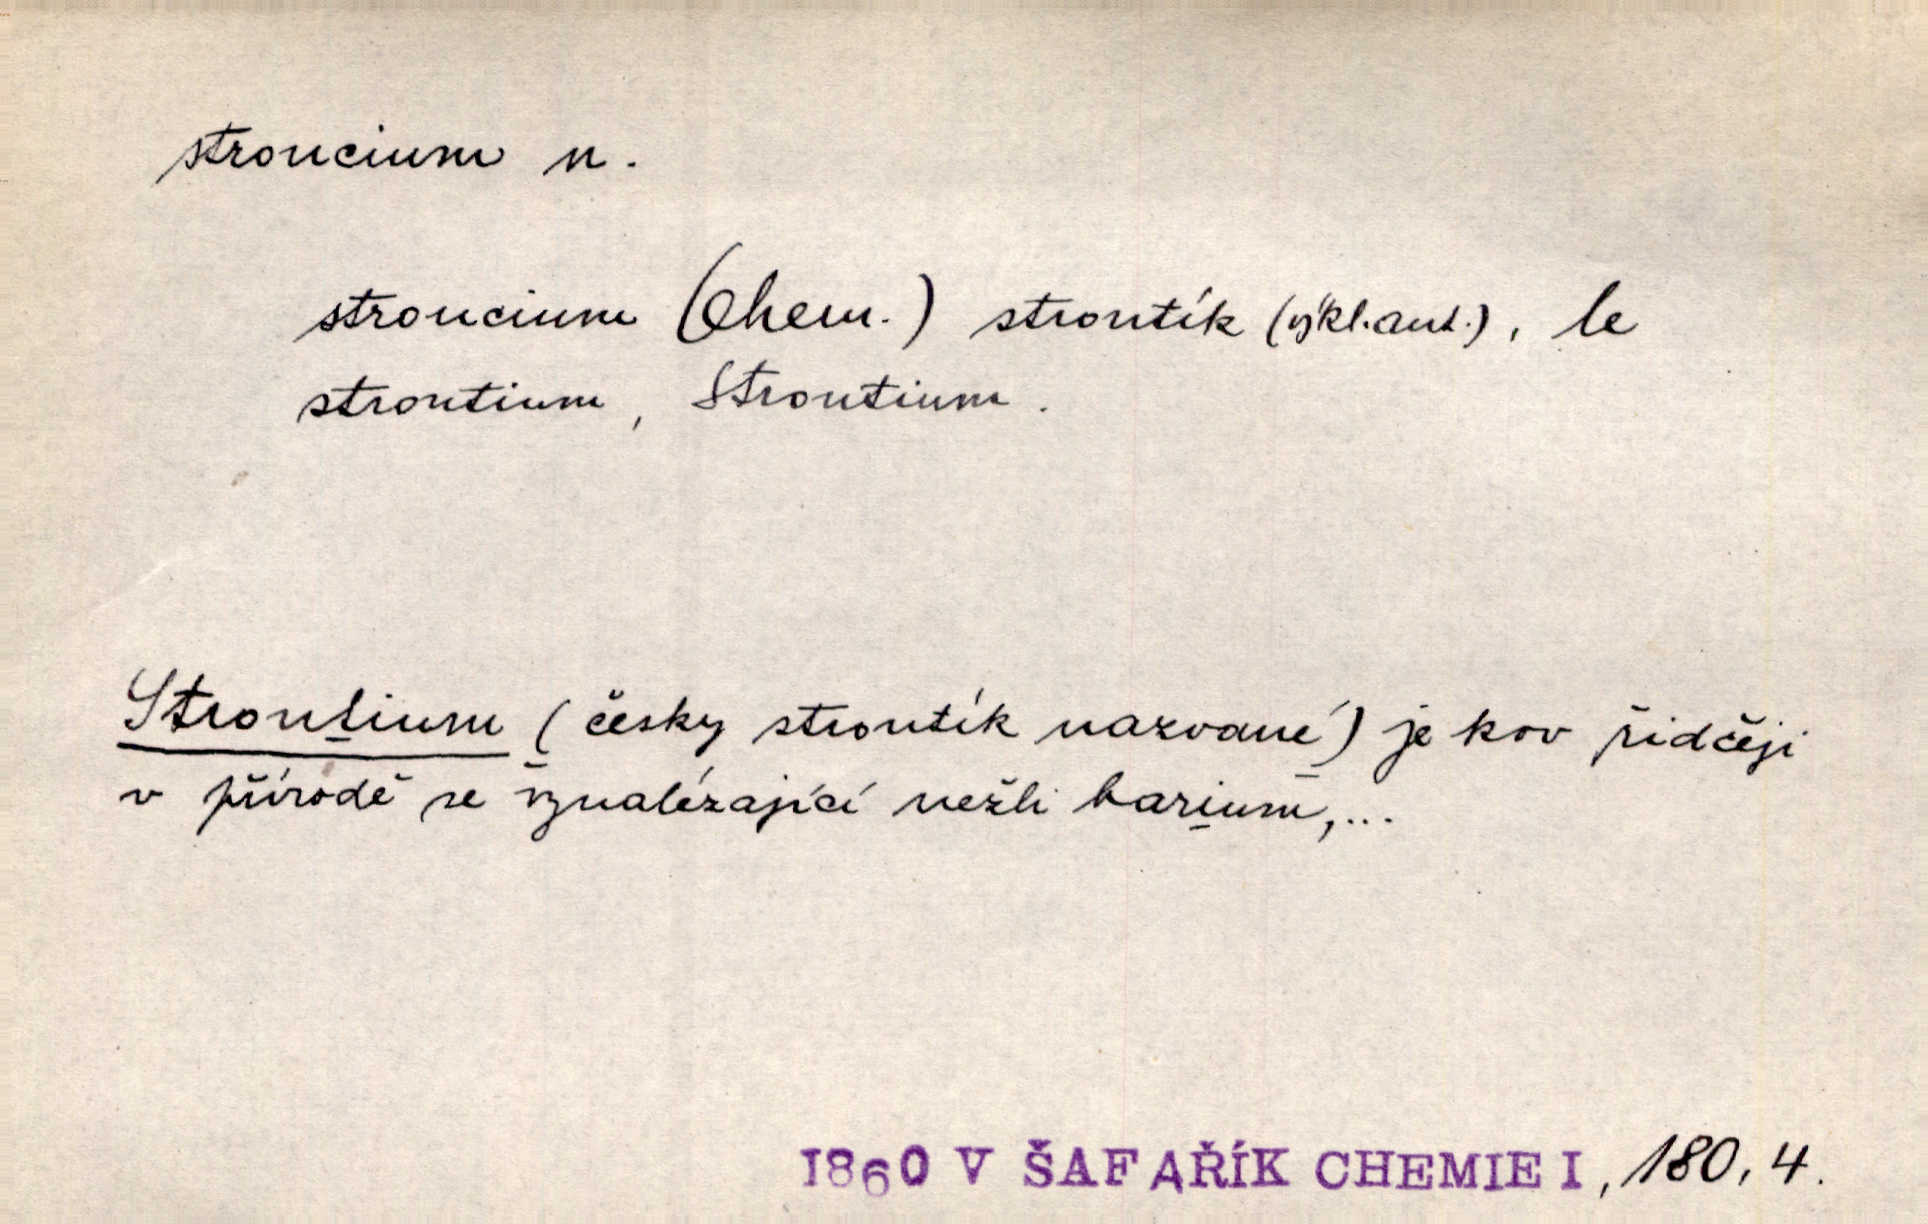 stroncium n.
stroncium (Chem.) strontík (výkl. aut.), le
strontium, Strontium.
Strontium (česky strontík nazvané) je kov řidčeji
v přírodě se vynalézající nežli barium,...
1860 V ŠAFAŘÍK CHEMIE I, 180, 4.